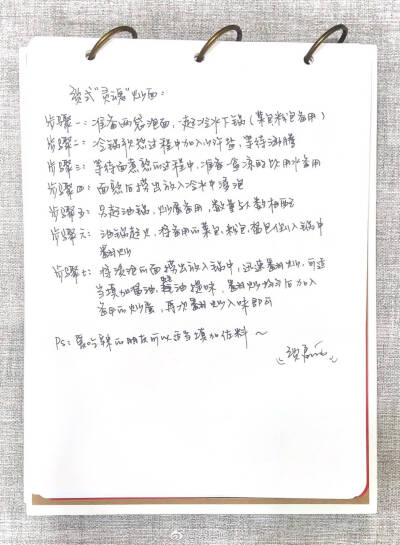 式“灵魂”炒面：
步骤一：准备两袋泡面，一起冷水下锅（菜包粉包备用）
步骤二：冷锅软面过程中加入少许盐，等待沸腾
步骤三：等待面煮熟的过程中，准备一盒凉的饮用水备用
步骤四：面熟后捞出放入冷水中浸泡
步骤五：另起油锅，炒蛋备用，数量与人数相配
步骤六：油锅起火，将备用的菜包，粉包，酱包倒入锅中
翻炒
步骤七：将浸泡的面捞出放入锅中，迅速翻炒，可适
当添加酱油，蚝油提味，翻炒均匀后加入
备用的炒蛋，再次翻炒入味即可
Ps：喜吃辣的朋友可以适当添加佐料～